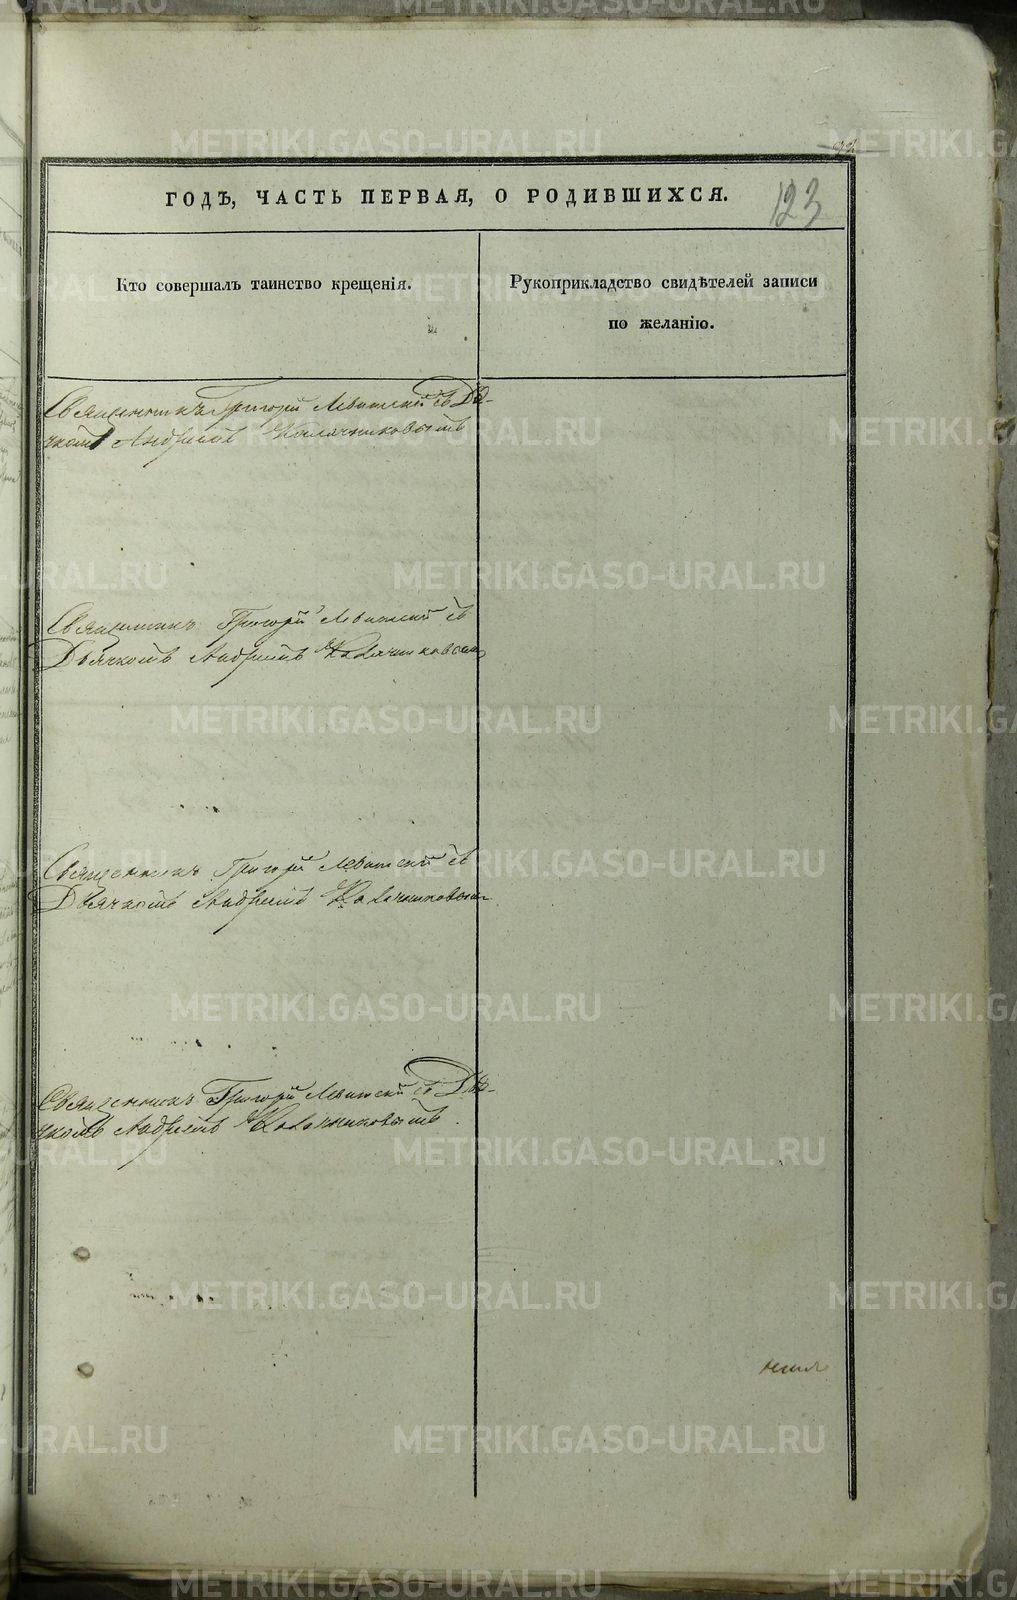 92
ГОДЪ, ЧАСТЬ ПЕРВАЯ, О РОДИВШИХСЯ.
123
Кто совершалъ таинство крещенія.
Рукоприкладство свидѣтелей записи
по желанію.
Священникъ Григорій Левитскій съ Дья-
чкомъ Андреемъ Калачниковымъ
Священникъ Григорій Левитскій съ
Дьячкомъ Андреемъ Калачниковымъ
Священникъ Григорій Левитскій съ
Дьячкомъ Андреемъ Калачниковымъ
Священникъ Григорій Левитскій съ Дья-
чкомъ Андреемъ Калачниковымъ.
METRIKI.GASO-URAL.RU